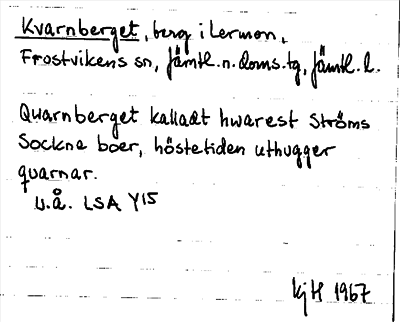 Kvarnberget, berg i Lermon,
Frostvikens sn, Jämtl. n. doms. tg, Jämtl. l.
Quarnberget kalladt hwarest Ströms
Sockne boer, höstetiden uthugger
quarnar.
u.å. LSA Y15
KjH 1967